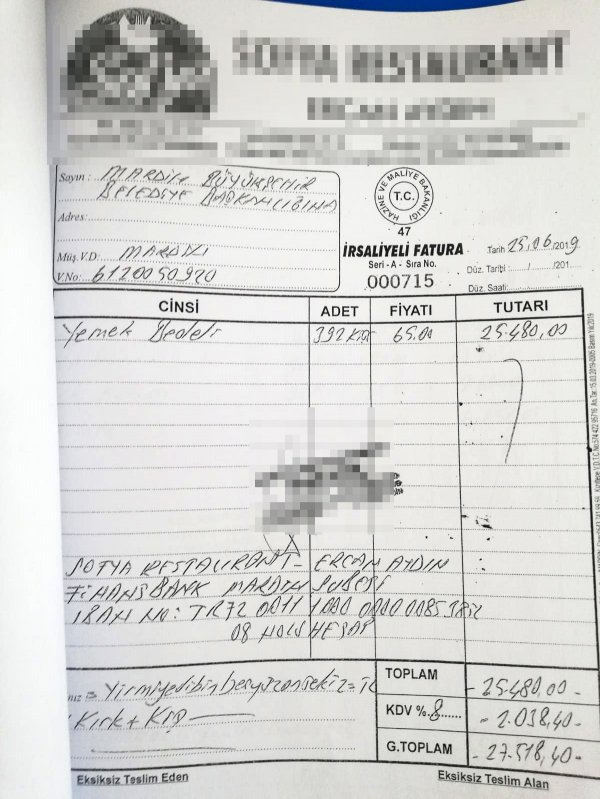 SOFYA RESTAURANT
Sayın : MARDİN BÜYÜKŞEHİR
BELEDİYE BAŞKANLIĞINA
Adres:
Müş.V.D: MARDİN
V.No: 6120050920
HAZİNE VE MALİYE BAKANLIĞI
T.C.
47
İRSALİYELİ FATURA
Seri - A - Sıra No.
000715
Tarih 25.06/2019
Düz. Tarihi : ....../....../201...
Düz. Saati:
CİNSİ ADET FİYATI TUTARI
Yemek Bedeli 392 Kişi 65.00 25.480,00
SOFYA RESTAURANT - ERCAN AYDIN
FİNANSBANK MARDİN ŞUBESİ
IBAN NO: TR72 0011 1000 0000 0085
08 NOLU HESAP
TOPLAM - 25.480,00 -
Yirmiyedibin beşyüzonsekiz = TL
KDV %.8...... - 2.038,40 -
Kırk + Krş
G.TOPLAM - 27.518,40 -
Eksiksiz Teslim Eden Eksiksiz Teslim Alan